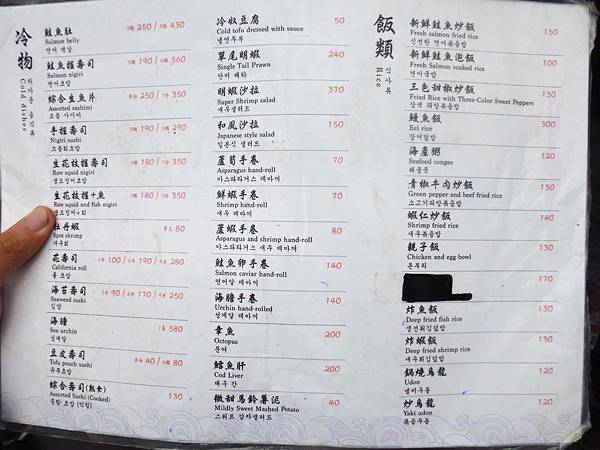 冷物
차가운 음식류
Cold dishes
鮭魚肚
Salmon belly
연어 뱃살
250 / 430
鮭魚握壽司
Salmon nigiri
연어초밥
190 / 360
綜合生魚片
Assorted sashimi
모듬 사시미
250 / 350
手握壽司
Nigiri sushi
모듬회초밥
190 / 290
生花枝握壽司
Raw squid nigiri
생오징어초밥
180 / 350
生花枝握+魚
Raw squid and fish nigiri
생오징어+회
180 / 350
牡丹蝦
Spot shrimp
새우회
80
花壽司
California roll
롤 초밥
100 / 190 / 280
海苔壽司
Seaweed sushi
김밥
90 / 170 / 250
海膽
Sea urchin
성게알
580
豆皮壽司
Tofu pouch sushi
유부초밥
40 / 80
綜合壽司(熟食)
Assorted Sushi (Cooked)
모듬 초밥 (익힘)
130
冷奴豆腐
Cold tofu dressed with sauce
냉연두부
50
單尾明蝦
Single Tail Prawn
단미 대하
240
明蝦沙拉
Super Shrimp salad
새우샐러드
370
和風沙拉
Japanese style salad
일본식 샐러드
150
蘆筍手卷
Asparagus hand-roll
아스파라거스 데마끼
70
鮮蝦手卷
Shrimp hand-roll
새우 데마끼
70
蘆蝦手卷
Asparagus and shrimp hand-roll
아스파라거스 새우 데마끼
80
鮭魚卵手卷
Salmon caviar hand-roll
연어알 데마끼
140
海膽手卷
Urchin hand-rolled
성게알 데마끼
140
章魚
Octopus
문어
200
鱈魚肝
Cod Liver
대구 간
200
微甜馬鈴薯泥
Mildly Sweet Mashed Potato
스위트 감자샐러드
40
飯類
식사류
Rice
新鮮鮭魚炒飯
Fresh salmon fried rice
신선한 연어볶음밥
150
新鮮鮭魚泡飯
Fresh Salmon soaked rice
연어국밥
130
三色甜椒炒飯
Fried Rice with Three-Color Sweet Peppers
삼색 피망볶음밥
130
鰻魚飯
Eel rice
장어덮밥
300
海產粥
Seafood congee
해물죽
120
青椒牛肉炒飯
Green pepper and beef fried rice
소고기피망볶음밥
130
蝦仁炒飯
Shrimp fried rice
새우볶음밥
140
親子飯
Chicken and egg bowl
돈부리
130
170
炸魚飯
Deep fried fish rice
생선튀김덮밥
130
炸蝦飯
Deep fried shrimp rice
새우튀김덮밥
130
鍋燒烏龍
Udon
냄비우동
120
炒烏龍
Yaki udon
볶음우동
120